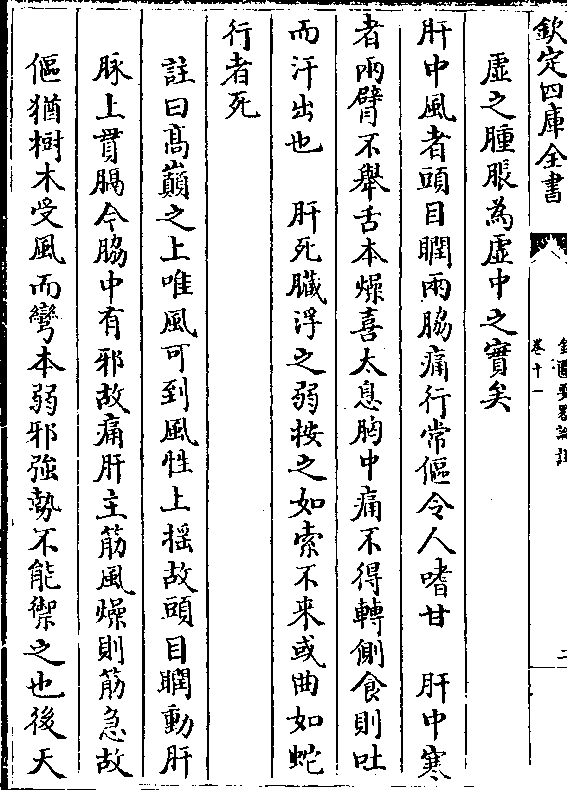 欽定四庫全書
金匱要略論註
卷十一
二
虛之腫脹為虛中之實矣
肝中風者頭目瞤兩脇痛行常傴令人嗜甘　肝中寒
者兩臂不舉舌本燥喜太息胸中痛不得轉側食則吐
而汗出也　肝死臟浮之弱按之如索不来或曲如蛇
行者死
註曰高巔之上唯風可到風性上揺故頭目瞤動肝
脉上貫膈今脇中有邪故痛肝主筋風燥則筋急故
傴猶樹木受風而彎本弱邪強勢不能禦之也後天